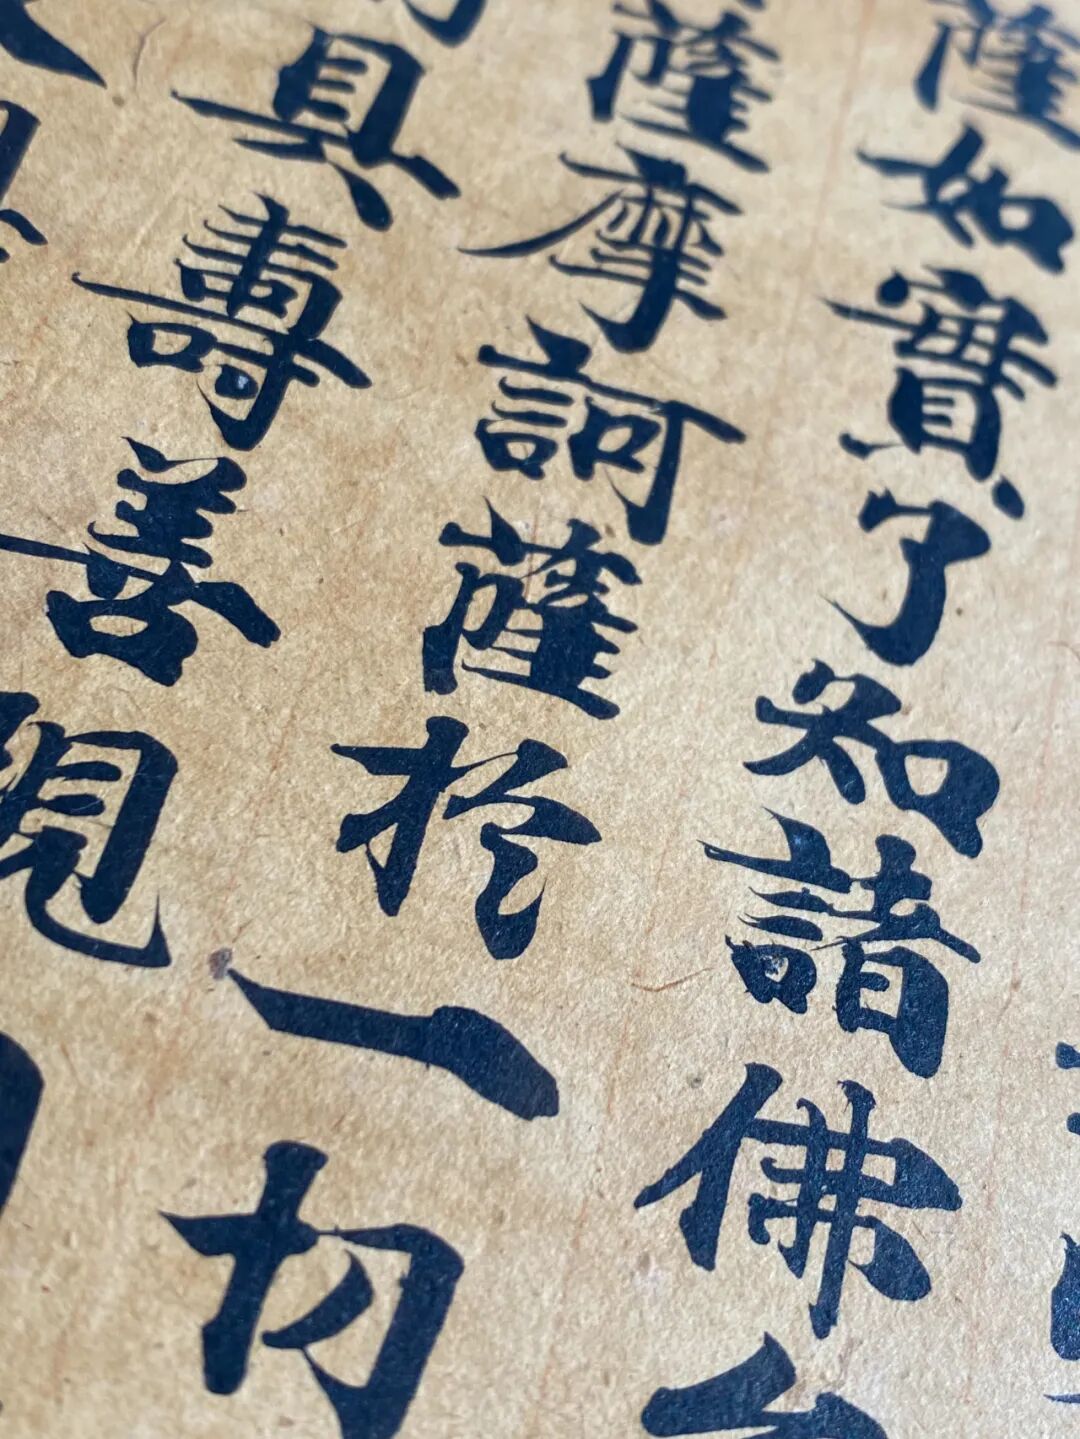 薩如實了知諸佛
薩摩訶薩於一切
具壽善現